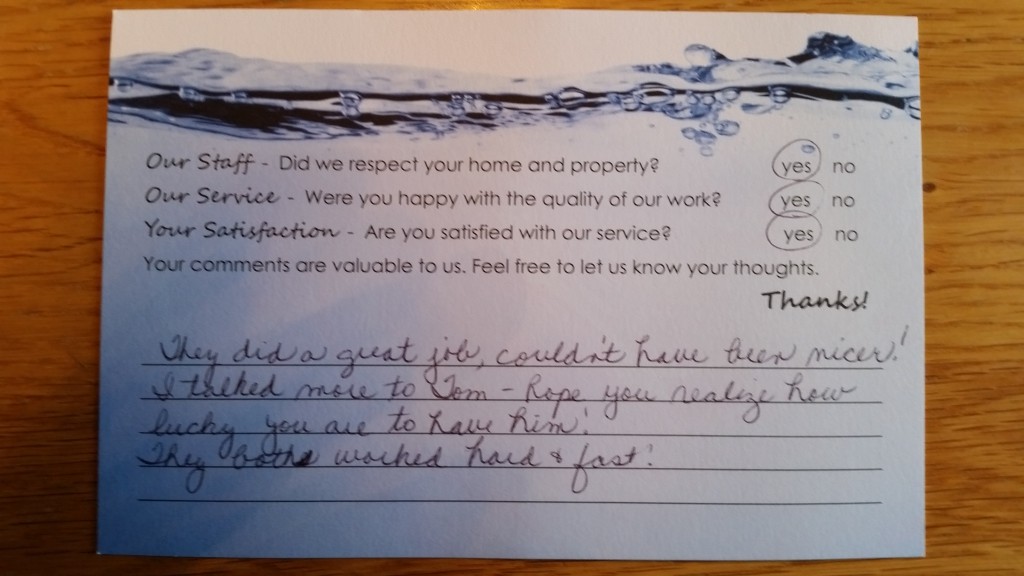 Our Staff - Did we respect your home and property? yes no
Our Service - Were you happy with the quality of our work? yes no
Your Satisfaction - Are you satisfied with our service? yes no
Your comments are valuable to us. Feel free to let us know your thoughts.
Thanks!
They did a great job, couldn't have been nicer!
I talked more to Tom - Hope you realize how
lucky you are to have him!
They both worked hard & fast!